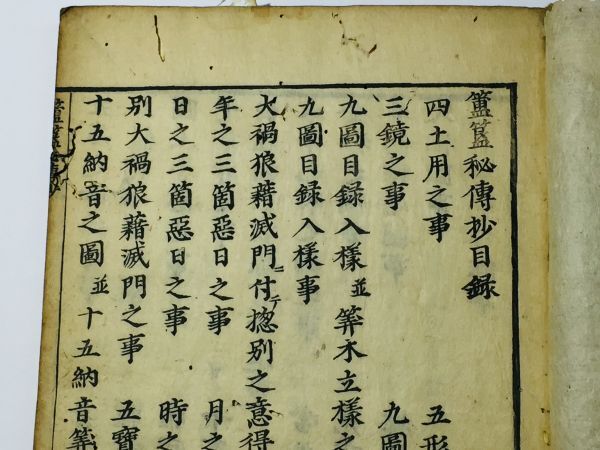 簠簋秘傳抄目録
四土用之事 五形
三鏡之事 九圖
九圖目録入様並 筭木立様之
九圖目録入様事
大禍狼藉滅門ニ付テ揔別之意得
年之三箇惡日之事 月之
日之三箇惡日之事 時之
別大禍狼藉滅門之事 五寶
十五納音之圖並十五納音筭
簠簋